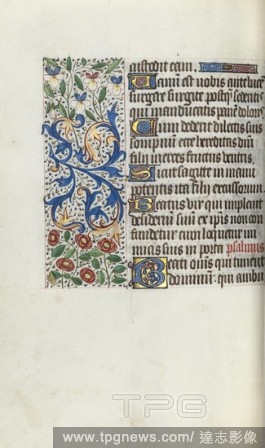 custodit eam.
Vanum est vobis ante lucē
surgere surgite postq̄ sederitis
qui manducatis panē doloris
Cum dederit dilectis suis
sompnum ecce hereditas dnī
filii merces fructus ventris.
Sicut sagitte in manu
potentis ita filii excussorum.
Beatus vir qui implevit
desiderium suū ex ipsis non con
fundetur cum loquetur ini
micis suis in porta psalmus
Beati om̄s qui timent
dominum: qui ambu
TPG
www.tpgnews.com/達志影像